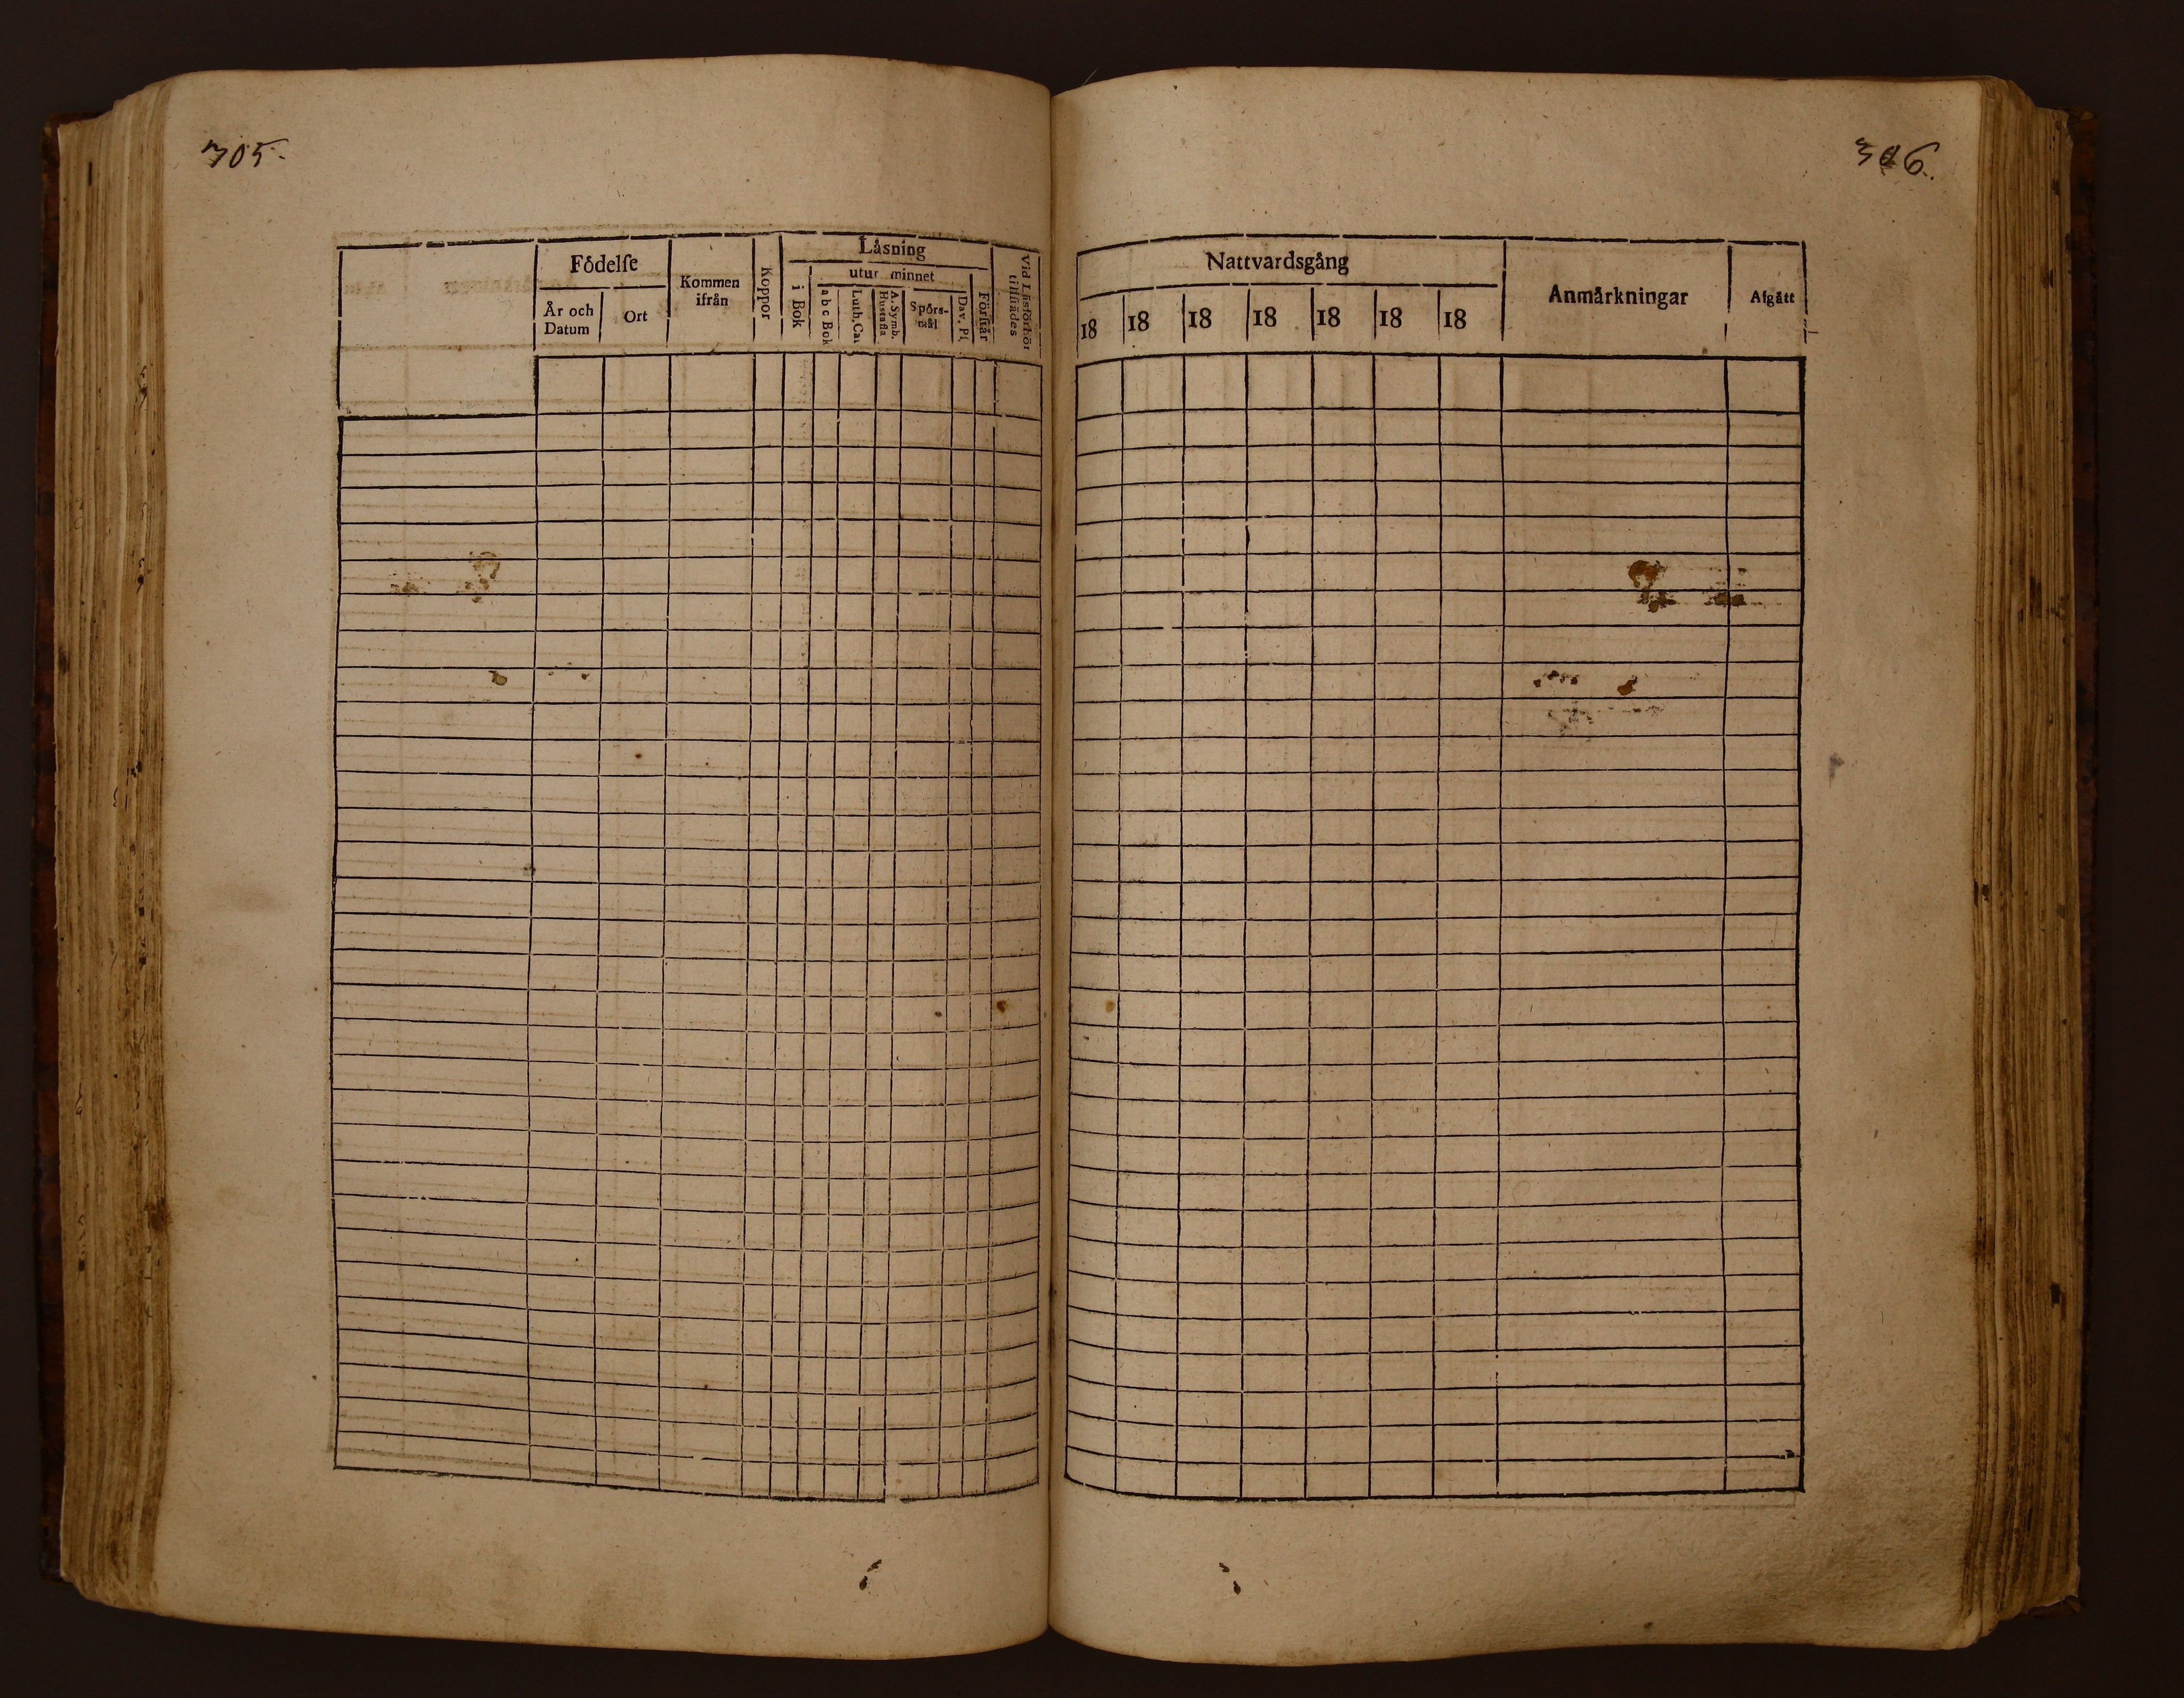 305.
306.
Födelſe
År och Datum
Ort
Kommen ifrån
Koppor
Läsning
i Bok
utur minnet
a b c Bok
Luth. Cat
A. Symb. Hustafla
Spörs-mål
Dav. Ps
Förstår
Vid Läsförhör tillstädes
Nattvardsgång
18 18 18 18 18 18 18
Anmärkningar
Afgått